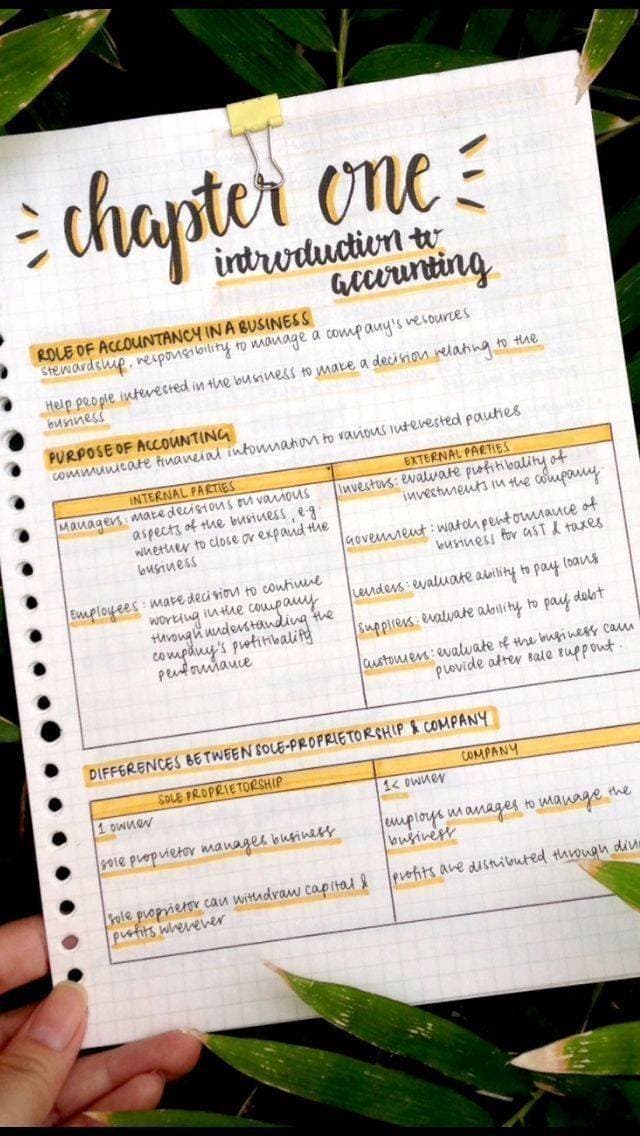 chapter one
introduction to
accounting
ROLE OF ACCOUNTANCY IN A BUSINESS
stewardship, responsibility to manage a company's resources
Help people interested in the business to make a decision relating to the
business
PURPOSE OF ACCOUNTING
communicate financial information to various interested parties
INTERNAL PARTIES
Managers: make decisions on various
aspects of the business, e.g.
whether to close or expand the
business
Employees: make decision to continue
working in the company
through understanding the
company's profitibality
performance
EXTERNAL PARTIES
Investors: evaluate profitibality of
investments in the company.
Government: watch performance of
business for GST & taxes
Lenders: evaluate ability to pay loans
Suppliers: evaluate ability to pay debt
Customers: evaluate if the business can
provide after sale support.
DIFFERENCES BETWEEN SOLE-PROPRIETORSHIP & COMPANY
SOLE PROPRIETORSHIP
1 owner
sole proprietor manages business
sole proprietor can withdraw capital &
profits whenever
COMPANY
1< owner
employs manages to manage the
business
profits are distributed through